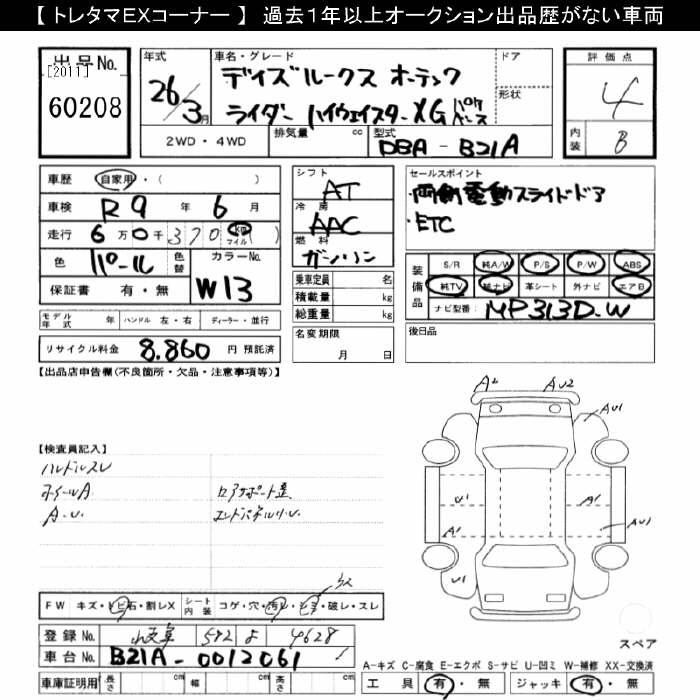 【 トレタマEXコーナー 】 過去1年以上オークション出品歴がない車両
出品No.
[2011]
60208
年式
26/3月
車名・グレード
デイズルークス オーテック
ライダー ハイウェイスターXG
ドア
形状
評価点
4
内装
B
2WD・4WD
排気量 cc
型式
DBA-B21A
車歴 自家用・( )
車検 R9年 6月
走行 6万0千370 km マイル ( )
色 パール 色替
カラーNo.
W13
保証書 有・無
シフト
AT
冷房
AAC
燃料
ガソリン
乗車定員 名
積載量 kg
総重量 kg
セールスポイント
・両側電動スライドドア
・ETC
装備品
S/R 純A/W P/S P/W ABS
純TV 純ナビ 革シート 外ナビ エアB
ナビ型番: MP313D-W
モデル年式 年 ハンドル 左・右 ディーラー・並行
リサイクル料金 8.860 円 預託済
名変期限
月 日
後日品
【出品店申告欄(不良箇所・欠品・注意事項等)】
A2 AU2
AU1
【検査員記入】
ハンドルスレ
ホイールA
A.U.
U1 A1
A1 AU1
U1
FW キズ・トビ石・割レX
シート内装 コゲ・穴・汚レ・シミ・破レ・スレ
登録No. 岐阜 582 よ 4628
車台No. B21A-0012061
車庫証明用 長さ cm 幅 cm 高さ cm
スペア
A-キズ C-腐食 E-エクボ S-サビ U-凹ミ W-補修 XX-交換済
工具 有・無 ジャッキ 有・無